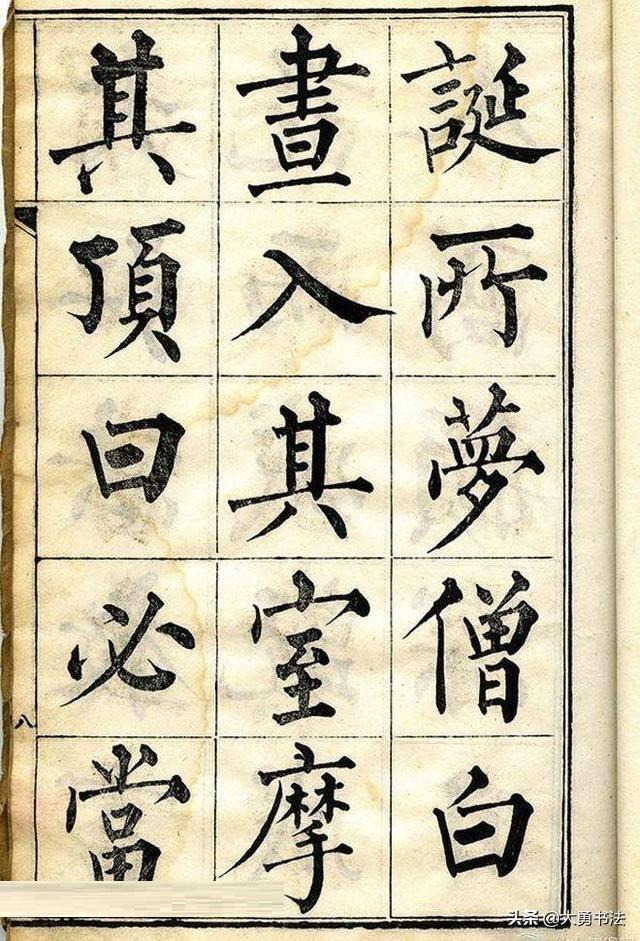 誕所夢僧白
晝入其室摩
其頂曰必當
八
头条@大勇书法